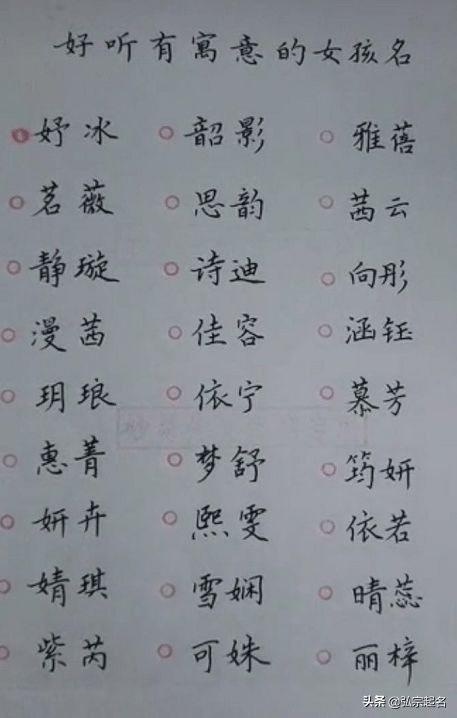 好听有寓意的女孩名
妤冰 韶影 雅蓓
茗薇 思韵 茜云
静璇 诗迪 向彤
漫茜 佳容 涵钰
玥琅 依宁 慕芳
惠菁 梦舒 筠妍
妍卉 熙雯 依若
婧琪 雪娴 晴蕊
紫芮 可姝 丽梓
头条 @弘宗起名